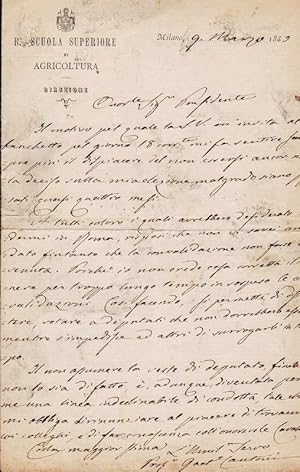 R. SCUOLA SUPERIORE
DI
AGRICOLTURA
DIREZIONE
Milano, 9. Marzo 1883
Onorle Sigr Presidente
Il motivo pel quale la S.V. mi invita al
banchetto pel giorno 18 corr mi fa sentire
più il dispiacere del non essersi ancor
deciso sulla mia elezione malgrado siano
quasi quattro mesi.
A tutti coloro i quali avrebbero desiderato
in Roma, risposi che non ci sarei
dato fintanto che la convalidazione non fosse
venuta. Poichè io non credo cosa corretta il
nere per troppo lungo tempo in sospeso le
validazioni. Così facendo, si permette di
tere, votare a deputati che non dovrebbero
mentre si impedisce ad altri di surrogarli in
po.
Il non assumere la veste di deputato, finchè
non lo sia di fatto è, adunque, diventata per
me una linea indeclinabile di condotta, tale che
mi obbliga di rinunciare al piacere di trovarmi
coi colleghi, e di far conoscenza coll'onorevole
Colla maggior stima
Prof. Gaet. Cantoni